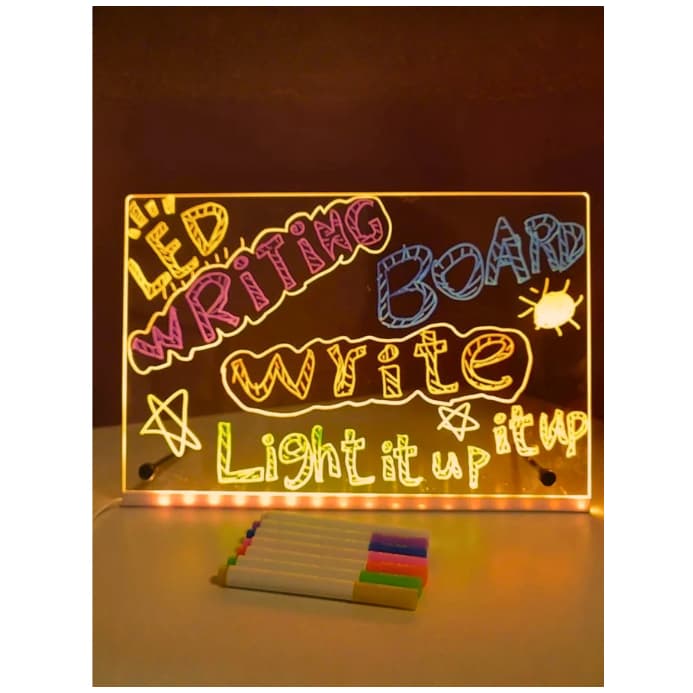 LED
WRITING
BOARD
write
Light it up
it up